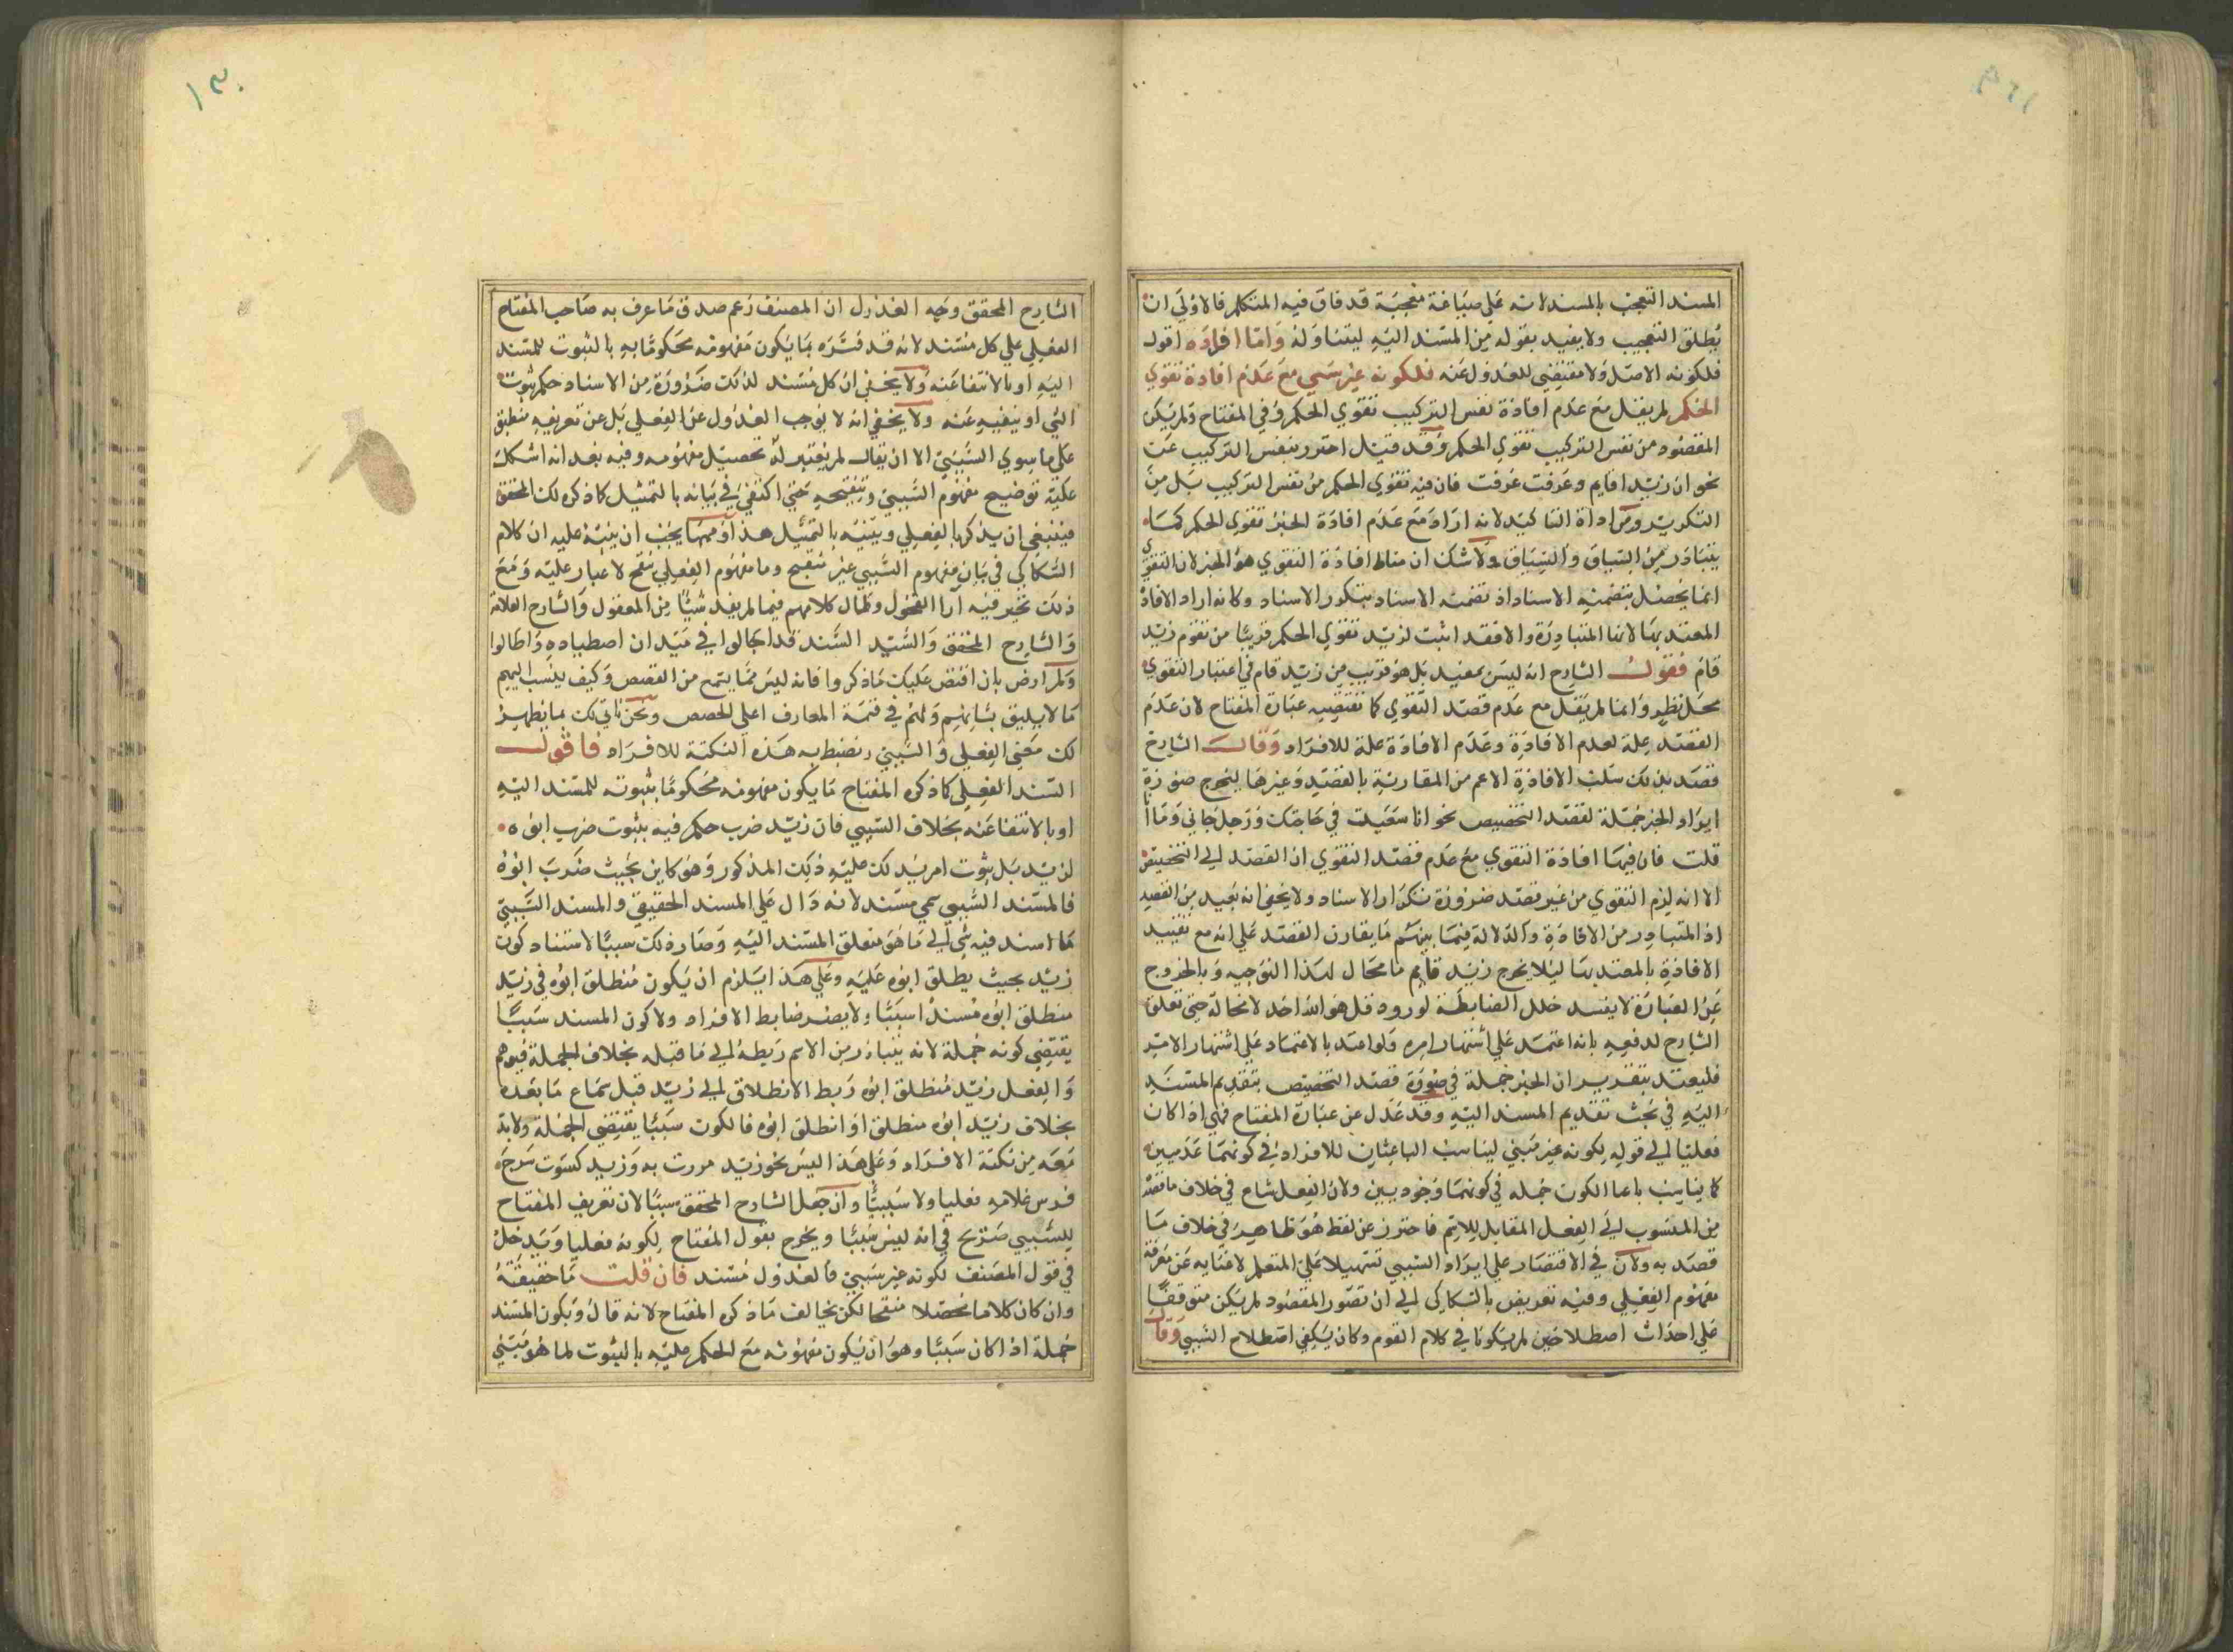 المسند التعجب بالمسند لانه على صياغة متعجبة قد فاق فيه المتكلم فالاولى ان
يطلق التعجيب ولا يقيد بقوله من المسند اليه ليتناوله وَامّا افرادَه اقول
فلكونه الاصل ولا مقتضى للعدول عنه فلكونه غير سببي مع عدم افادة تقوي
الحكم لم يقل مع عدم افادة نفس التركيب تقوي الحكم وفي المفتاح ولم يكن
المقصود من نفس التركيب تقوي الحكم وقد قيل احترز بنفس التركيب عن
نحو ان زيدا قايم وعرفت عرفت فان فيه تقوي الحكم من نفس التركيب بل من
التكرير ومن اداة التاكيد لانه اراد مع عدم افادة الخبر تقوي الحكم كما
يتبادر من السياق والسباق ولا شك ان مناط افادة التقوي هو الخبر لان التقوي
انما يحصل بتضمنه الاسناد اذ تضمنه الاسناد بتكرر الاسناد وكانه اراد الافادة
المعتد بها لانها المتبادرة والا فقد اثبت لزيد تقوي الحكم قريبا من تقوم زيد
قام فقول الشارح انه ليس بمفيد بل هو قريب من زيد قام في اعتبار التقوي
محل نظر وانما لم يقل مع عدم قصد التقوي كما تقتضيه عبارة المفتاح لان عدم
القصد علة لعدم الافادة وعدم الافادة علة للافراد وَقال الشارح
قصد بذلك سلب الافادة الاعم من المقارنة بالقصد وغيرها ليخرج صورة
ايراد الخبر جملة لقصد التخصيص نحو انا سعيت في حاجتك ورجل جاني وما انا
قلت فان فيها افادة التقوي مع عدم قصد التقوي ان القصد الى التخصيص
الا انه لزم التقوي من غير قصد ضرورة تكرار الاسناد ولا يخفى انه بعيد من القصد
اذ المتبادر من الافادة والدلالة فيما بينهم ما يقارن القصد على انه مع تقييد
الافادة بالمعتد بها ليلا يخرج زيد قايم ما مجال لهذا التوجيه وبالخروج
عن العبارة لا يفسد خلل الضابطة لورود قل هو الله احد لا محالة حتى تعلق
الشارح لدفعه بانه اعتمد على اشتهار امره ولو اعتد بالاعتماد على اشتهار الامر
فليعتد بتقدير ان الخبر جملة في صورة قصد التخصيص بتقديم المسند
اليه في بحث تقديم المسند اليه وقد عدل عن عبارة المفتاح فهي اذا كان
فعليا الى قوله لكونه غير سببي ليناسب الباعثان للافراد في كونهما عدميين
كما يناسب باعثا الكون جملة في كونهما وجوديين ولان الفعل شاع في خلاف ما قصد
من المنسوب الى الفعل المقابل للاسم فاحترز عن لفظ هو ظاهر في خلاف ما
قصد به ولان في الاقتصار على ايراد السببي تسهيلا على المتعلم لاغنايه عن معرفة
مفهوم الفعلي وفيه تعريض بالسكاكي الى ان تصور المقصود لم يكن متوقفا
على احداث اصطلاحين لم يكونا في كلام القوم وكان يكفي اصطلاح السببي وَقال
الشارح المحقق وجه العدول ان المصنف زعم صدق ما عرف به صاحب المفتاح
الفعلي على كل مسند لانه قد فسره بما يكون مفهومه محكوما به بالثبوت للمسند
اليه او بالانتفا عنه ولا يخفى ان كل مسند لذلك ضرورة من الاسناد حكم بثبوت
الشي او بنفيه عنه ولا يخفى انه لا يوجب العدول عن الفعلي بل عن تعريفه منطبق
على ما سوى السببي الا ان يقال لم يعتبر له تحصيل مفهومه وفيه بعد انه اشكل
عليه توضيح مفهوم السببي وتنقيحه حتى اكتفى في بيانه بالتمثيل كما ذكره لك المحقق
فينبغي ان يذكر الفعلي ويبينه بالتمثيل هذا ومهما يجب ان ينبه عليه ان كلام
السكاكي في بيان مفهوم السببي غير منقح وما مفهوم الفعلي بنقح لا غبار عليه ومع
ذلك تحير فيه ارا الفحول وطال كلامهم فيما لم يفد شيئا من المعقول والشارح العلامة
والشارح المحقق والسيد السند قد اجالوا في ميدان اصطياده واطالوا
ولم ارض بان اقتص عليك ما ذكروا فانه ليس مما يتمع من القصص وكيف ينسب اليهم
ما لا يليق بشانهم ولهم في قسمة المعارف اعلى الحصص ونحن ناتي لك بما يظهر
لك معنى الفعلي والسببي وتضبط به هذه النكتة للافراد فاقول
المسند الفعلي كما ذكره المفتاح ما يكون مفهومه محكوما بثبوته للمسند اليه
او بالانتفا عنه بخلاف السببي فان زيد ضرب حكم فيه بثبوت ضرب ابوه
لزيد بل بثبوت امر يدلك عليه ذلك المذكور وهو كاين بحيث ضرب ابوه
فالمسند السببي سمي مسند لانه دال على المسند الحقيقي والمسند السببي
ما اسند فيه شي الى ما هو متعلق المسند اليه وصار ذلك سببا لاستناد كون
زيد بحيث يطلق ابوه عليه وعلى هذا يلزم ان يكون منطلق ابوه في زيد
منطلق ابوه مسندا سببيا ولا يصير ضابط الافراد ولا كون المسند سببيا
يقتضي كونه جملة لانه يتبادر من الاسم ربطه الى ما قبله بخلاف الجملة فيوهم
والفعل زيد منطلق ابوه ربط الانطلاق الى زيد قبل سماع ما بعده
بخلاف زيد ابوه منطلق او انطلق ابوه فالكون سببيا يقتضي الجملة ولا بد
معه من نكتة الافراد وعلى هذا ليس نحو زيد مررت به وزيد كسرت سرج
فرس غلامه فعليا ولا سببيا وان جعل الشارح المحقق سببيا لان تعريف المفتاح
للسببي صريح في انه ليس سببيا ويخرج بقول المفتاح لكونه فعليا ويدخل
في قول المصنف لكونه غير سببي فالعدول مسند فان قلت ما حقيقته
وان كان كلاما محصلا منقحا لكن يخالف ما ذكره المفتاح لانه قال ويكون المسند
جملة اذا كان سببيا وهو ان يكون مفهومه مع الحكم عليه بالثبوت لما هو مبني
١٣٠